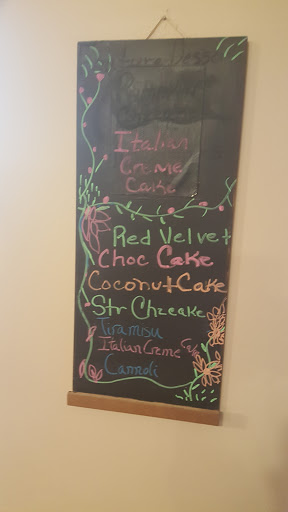 Italian
Creme
Cake
Red Velvet
Choc Cake
Coconut Cake
Str Chzcake
Tiramisu
Italian Creme Cake
Cannoli